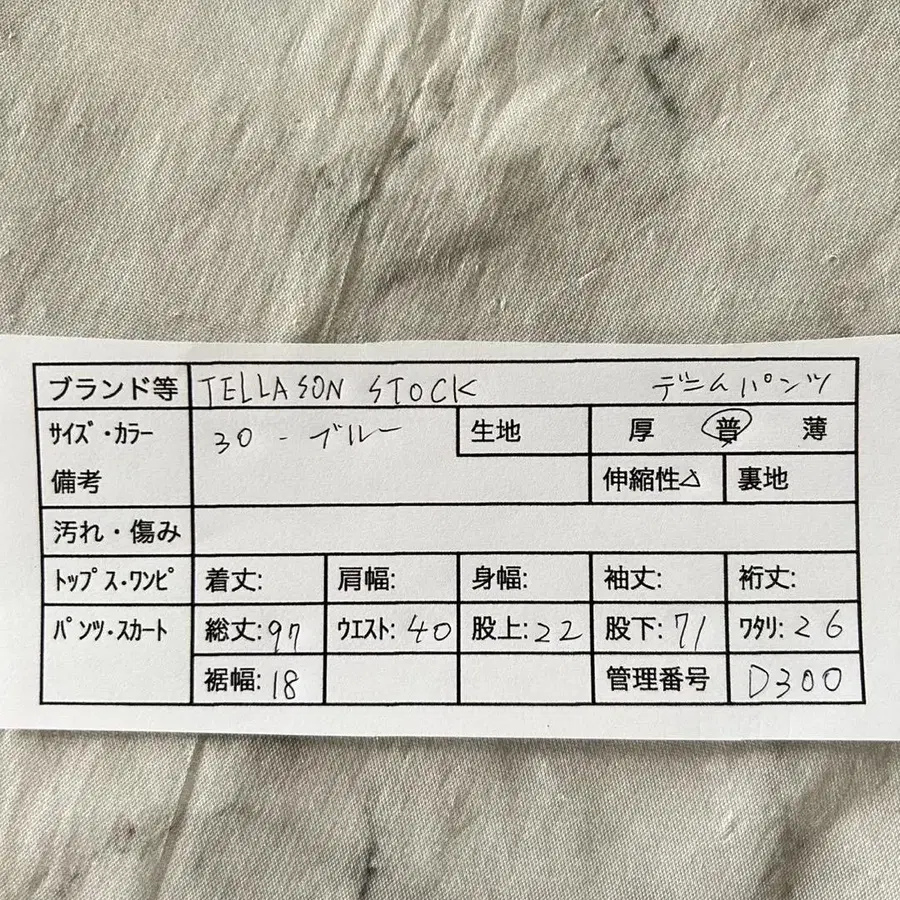 ブランド等 TELLASON STOCK デニムパンツ
サイズ・カラー 30 - ブルー 生地 厚 普 薄
備考 伸縮性△ 裏地
汚れ・傷み
トップス・ワンピ 着丈: 肩幅: 身幅: 袖丈: 裄丈:
パンツ・スカート 総丈:97 ウエスト:40 股上:22 股下:71 ワタリ:26
裾幅:18 管理番号 D300